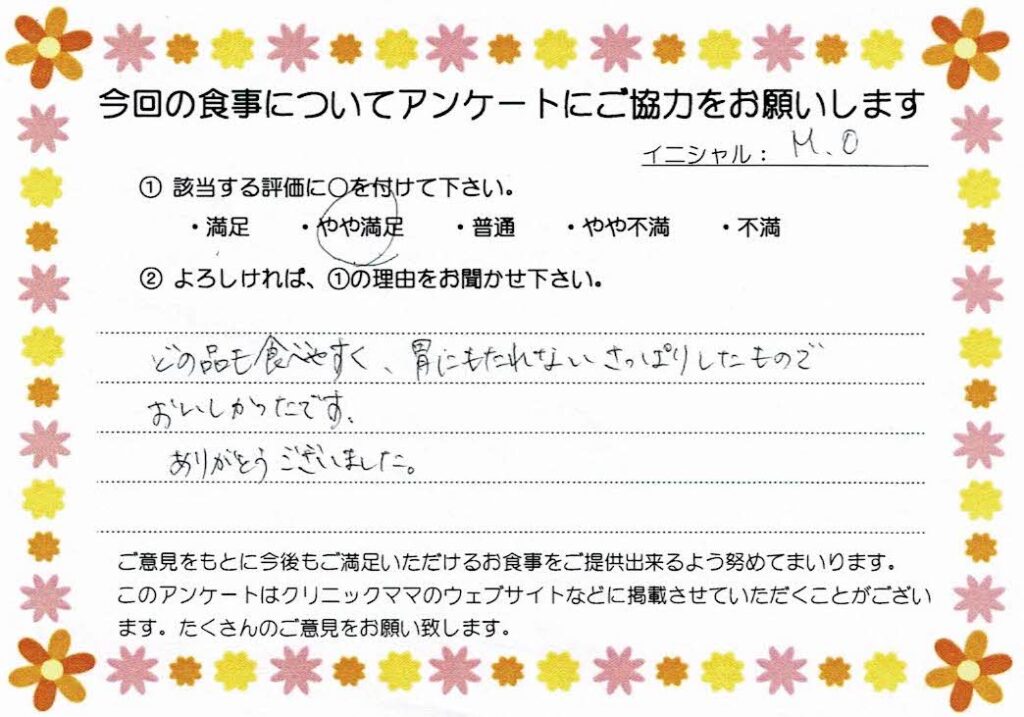 今回の食事についてアンケートにご協力をお願いします
イニシャル： M.O
① 該当する評価に○を付けて下さい。
・満足 ・やや満足 ・普通 ・やや不満 ・不満
② よろしければ、①の理由をお聞かせ下さい。
どの品も食べやすく、胃にもたれないさっぱりしたもので
おいしかったです。
ありがとうございました。
ご意見をもとに今後もご満足いただけるお食事をご提供出来るよう努めてまいります。
このアンケートはクリニックママのウェブサイトなどに掲載させていただくことがござい
ます。たくさんのご意見をお願い致します。